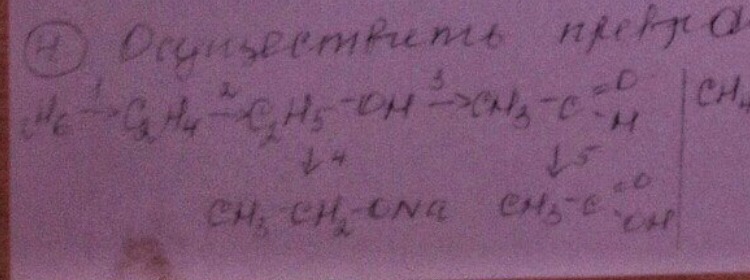 ④ Осуществить превра
H₆ 1→ C₂H₄ 2→ C₂H₅-OH 3→ CH₃-C=O -H | CH
↓4 ↓5
CH₃-CH₂-ONa CH₃-C=O -OH